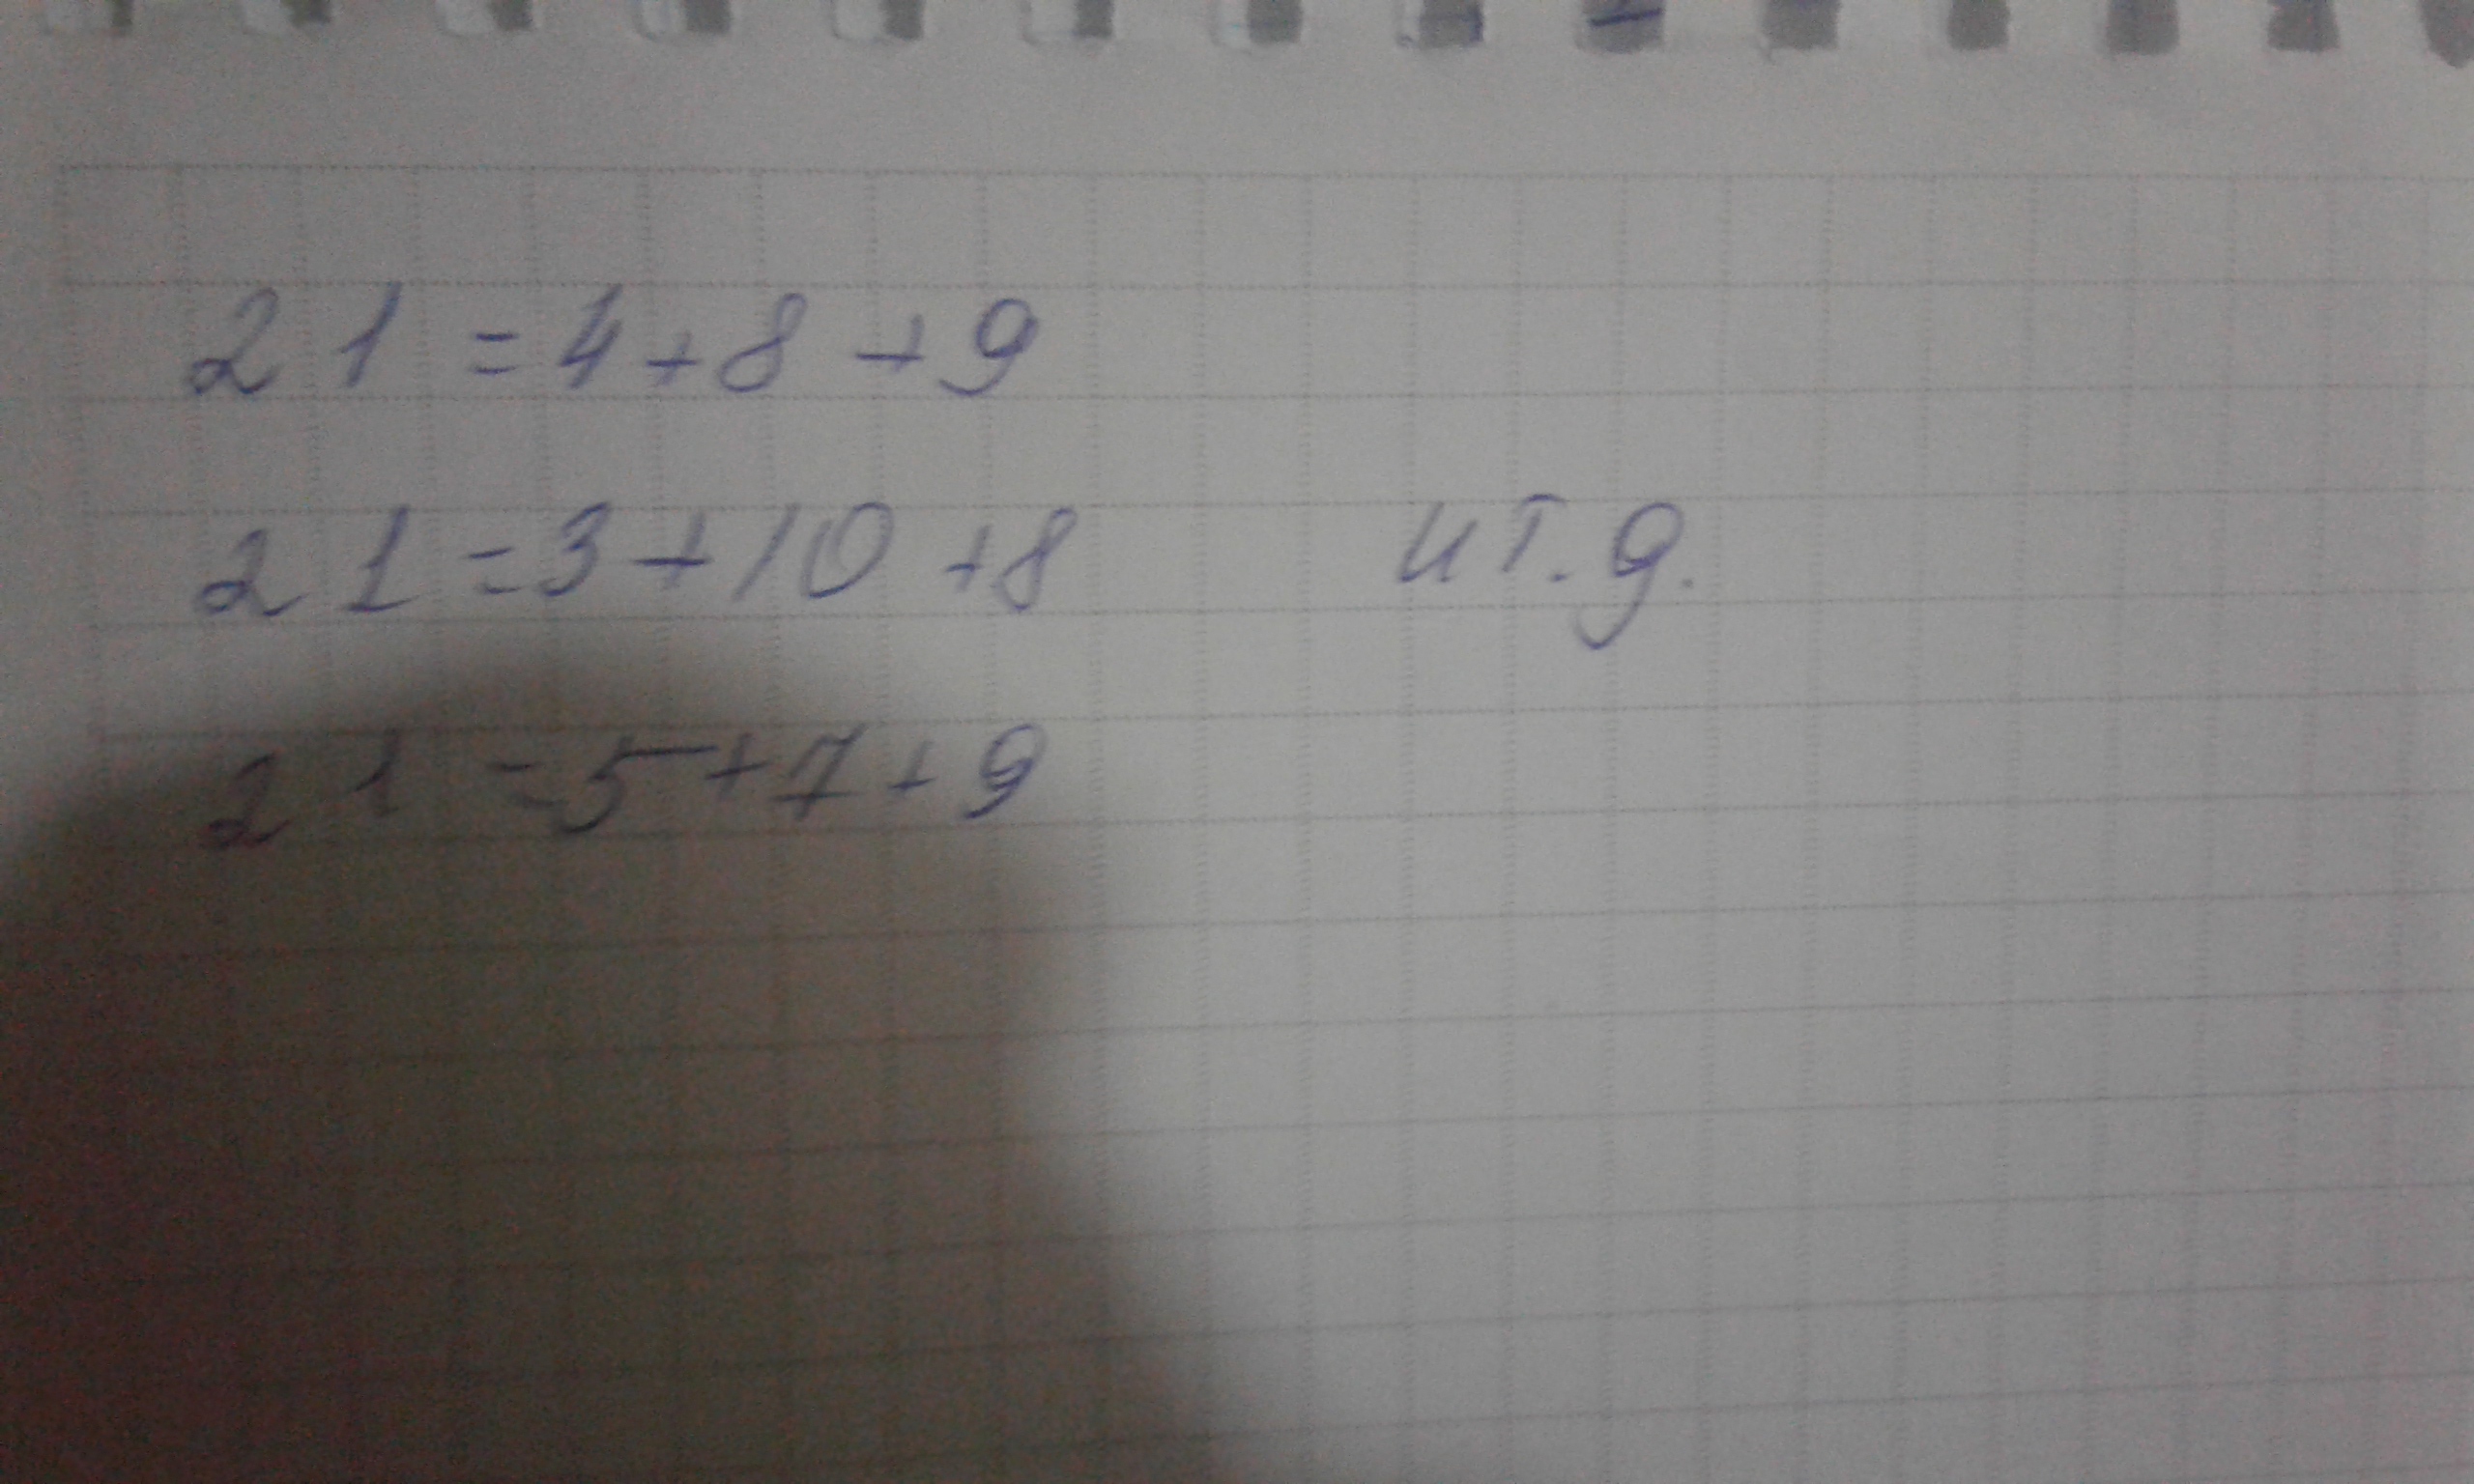 21 = 4 + 8 + 9
21 = 3 + 10 + 8 и т. д.
21 = 5 + 7 + 9